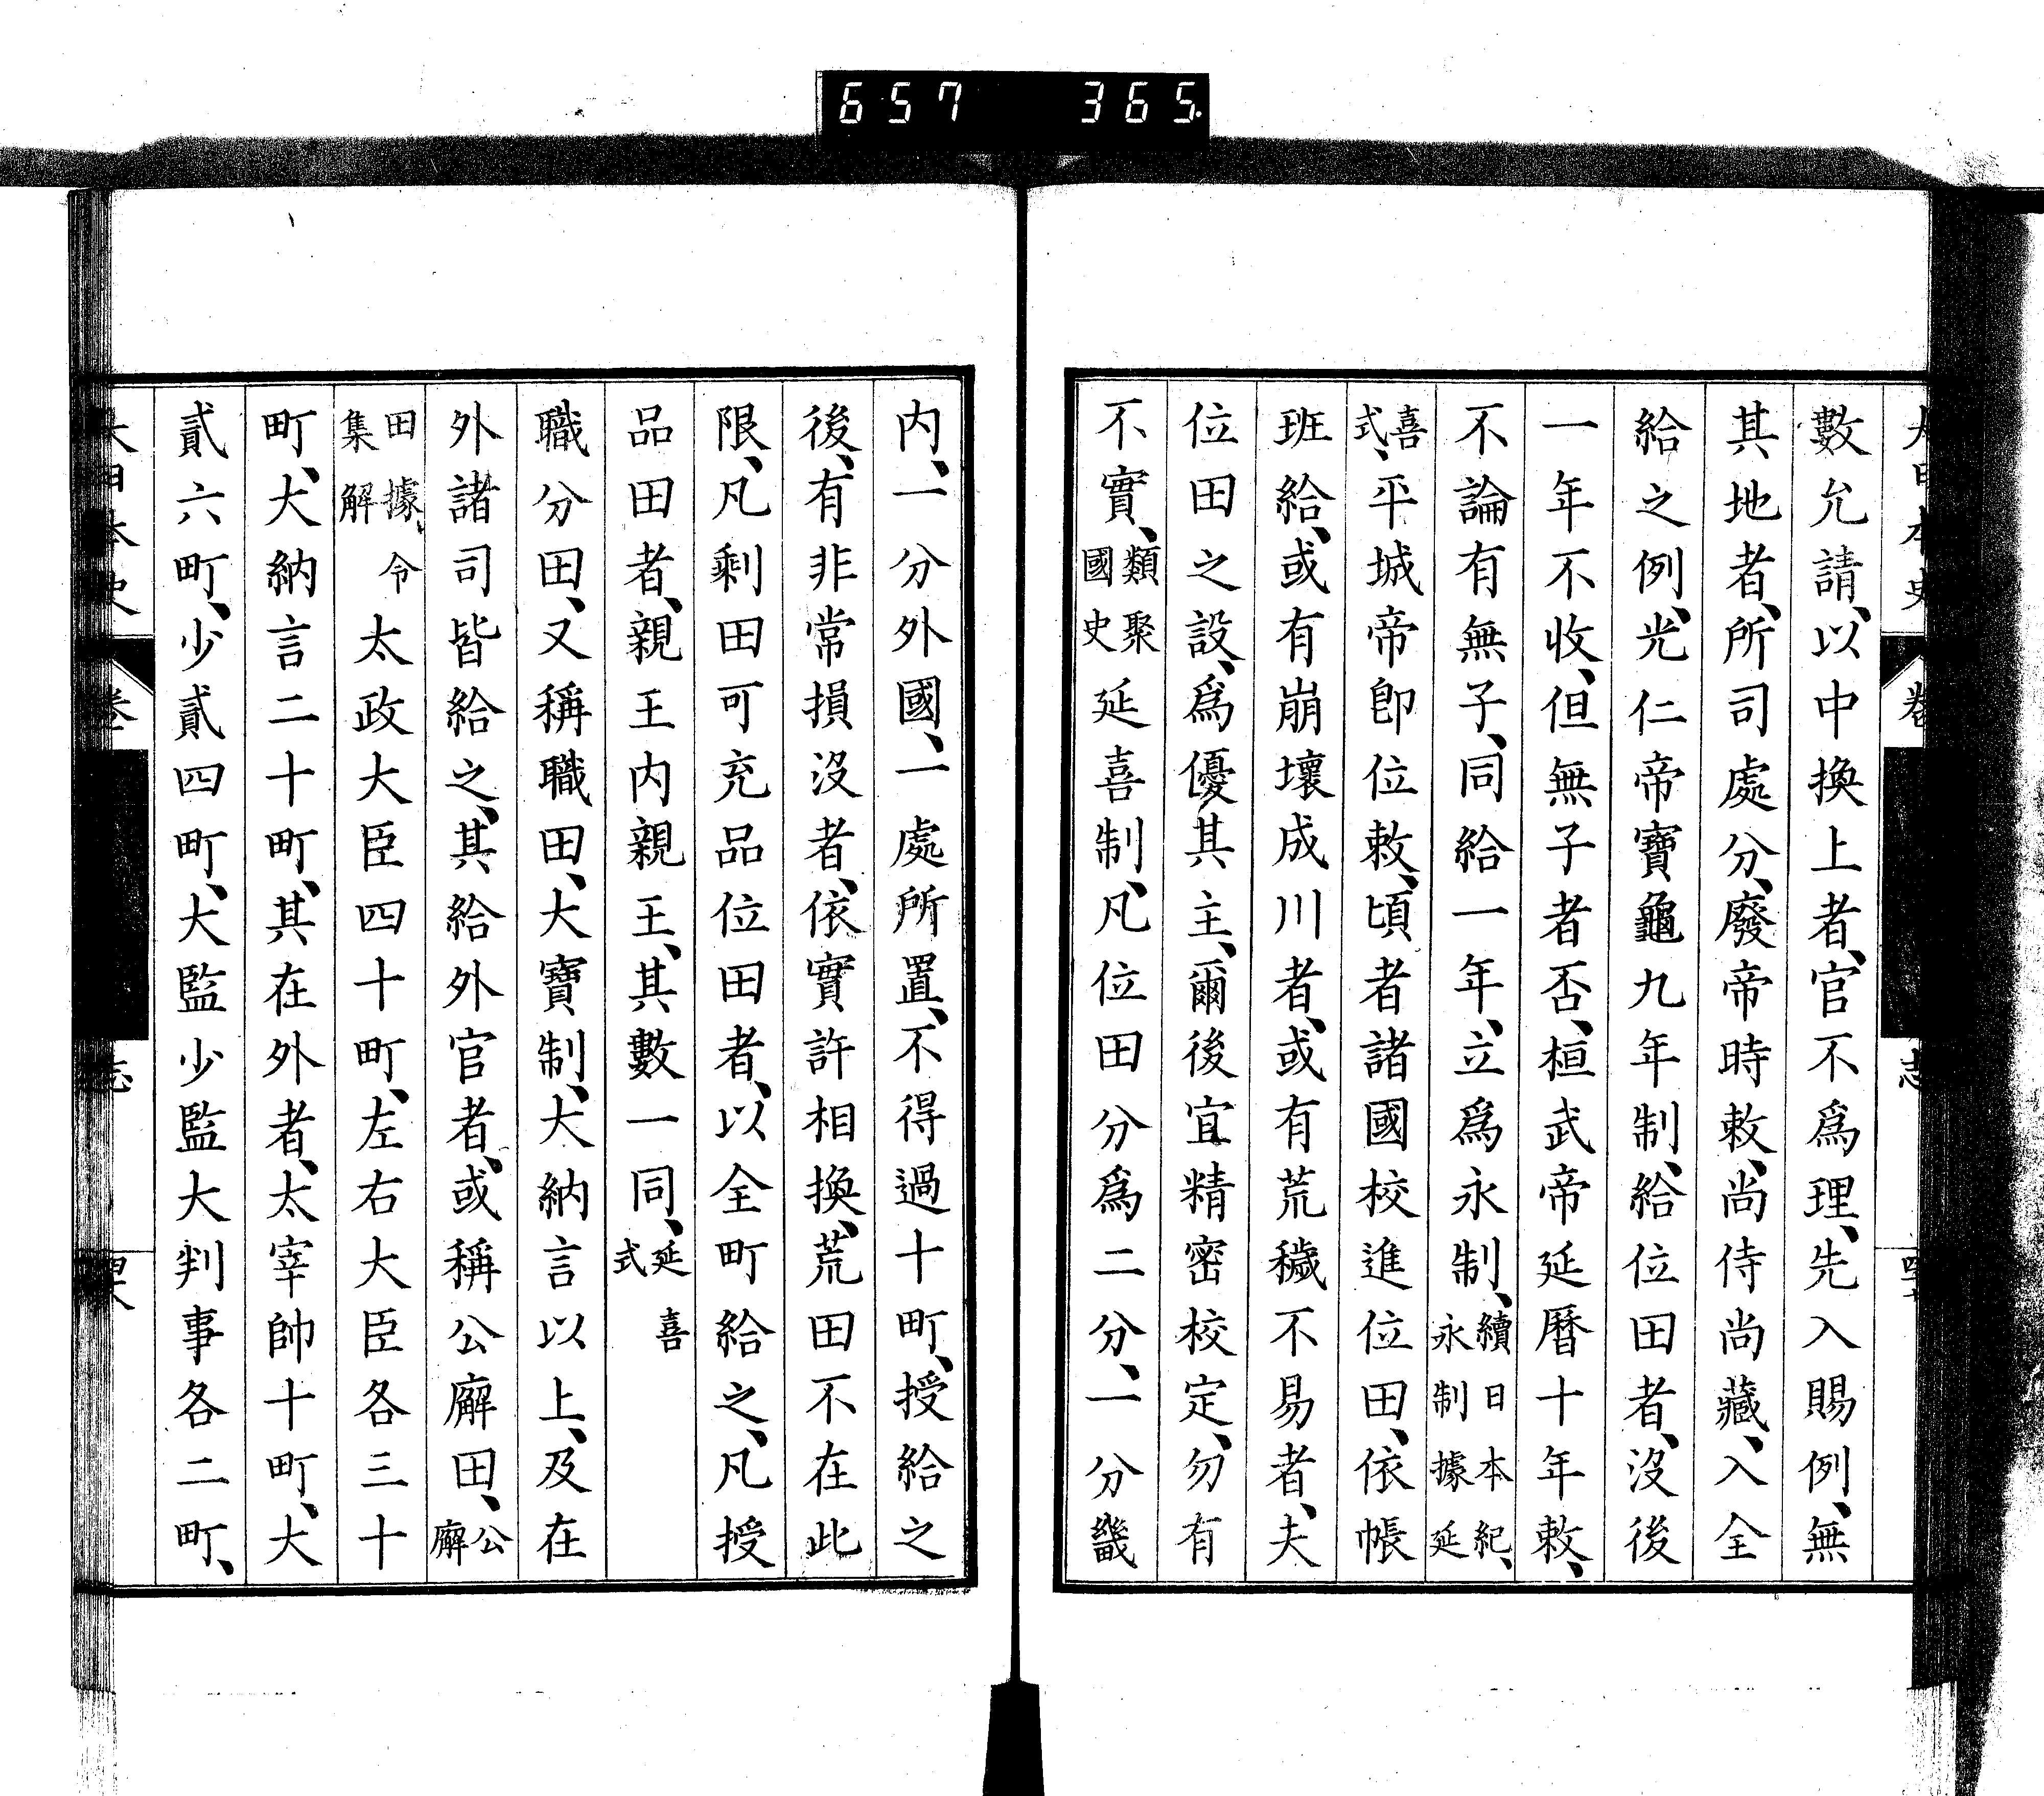 657 365
數允請、以中換上者、官不爲理、先入賜例、無
其地者、所司處分、廢帝時敕、尚侍尚藏、入全
給之例、光仁帝寶龜九年制、給位田者、沒後
一年不收、但無子者否、桓武帝延曆十年敕、
不論有無子、同給一年、立爲永制、續日本紀、永制據延
喜式、平城帝卽位敕、頃者諸國校進位田、依帳
班給、或有崩壞成川者、或有荒穢不易者、夫
位田之設、爲優其主、爾後宜精密校定、勿有
不實、類聚國史延喜制、凡位田分爲二分、一分畿
内、一分外國、一處所置、不得過十町、授給之
後、有非常損沒者、依實許相換、荒田不在此
限、凡剩田可充品位田者、以全町給之、凡授
品田者、親王内親王、其數一同、延喜式
職分田、又稱職田、大寶制、大納言以上、及在
外諸司皆給之、其給外官者、或稱公廨田、公廨
田據、令集解太政大臣四十町、左右大臣各三十
町、大納言二十町、其在外者、太宰帥十町、大
貳六町、少貳四町、大監少監大判事各二町、
大日本史 卷 志